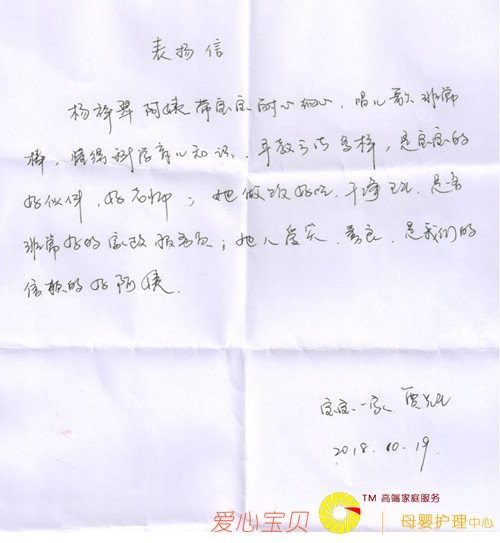 表扬信
杨 阿姨带宝宝耐心细心，唱儿歌非常
棒，懂得科学育儿知识，早教方法多样，是宝宝的
好伙伴，好老师；她做饭好吃，干净卫生，是名
非常好的家政服务员；她人老实、善良，是我们的
信赖的好阿姨．
宝宝一家 贾先生
2018.10.19
TM 高端家庭服务
爱心宝贝 母婴护理中心